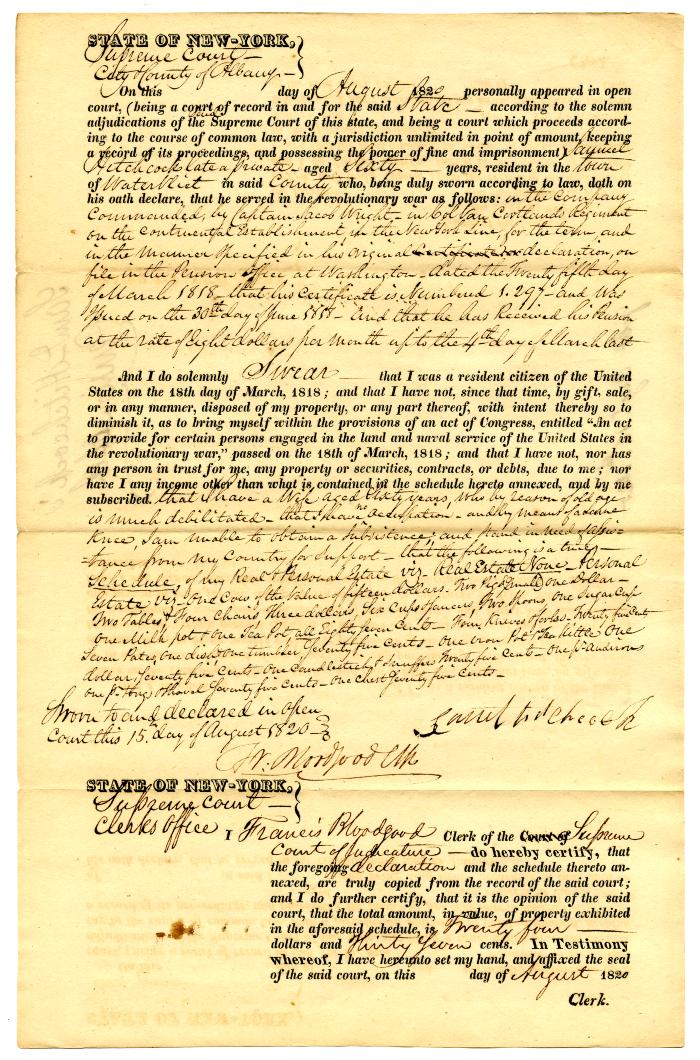 STATE OF NEW-YORK,
Supreme Court
City & County of Albany
On this day of August 1820 personally appeared in open
court, (being a court of record in and for the said State according to the solemn
adjudications of the Supreme Court of this state, and being a court which proceeds accord-
ing to the course of common law, with a jurisdiction unlimited in point of amount, keeping
a record of its proceedings, and possessing the power of fine and imprisonment) Samuel
Hitchcock late a private aged Sixty years, resident in the Town
of Watervliet in said County who, being duly sworn according to law, doth on
his oath declare, that he served in the revolutionary war as follows: in the Company
Commanded, by Captain Jacob Wright - in Col Van Cortlands Regiment
on the continental Establishment, in the New York Line, for the term, and
in the Manner Specified in his original declaration, on
file in the Pension office at Washington - dated the Twenty fifth day
of March 1818 - that his Certificate is Numbered 1.297 - and was
Issued on the 30th day of June 1818 - And that he has Received his Pension
at the rate of Eight dollars per month up to the 4th day of March last
And I do solemnly Swear that I was a resident citizen of the United
States on the 18th day of March, 1818; and that I have not, since that time, by gift, sale,
or in any manner, disposed of my property, or any part thereof, with intent thereby so to
diminish it, as to bring myself within the provisions of an act of Congress, entitled "An act
to provide for certain persons engaged in the land and naval service of the United States in
the revolutionary war," passed on the 18th of March, 1818; and that I have not, nor has
any person in trust for me, any property or securities, contracts, or debts, due to me; nor
have I any income other than what is contained in the schedule hereto annexed, and by me
subscribed. that I have a Wife aged Sixty years, who by reason of old age
is much debilitated - that I have no occupation - and by means of a lame
Knee, I am unable to obtain a subsistence; and stand in need of assis-
-tance from my Country for Support - that the following is a true
Schedule, of my Real & Personal Estate viz - Real Estate None - Personal
Estate viz - One Cow of the Value of fifteen dollars. Two Pigs (Small) one Dollar -
Two Tables & Four Chairs, Three dollars, Six Cups & Saucers, Two Spoons, one Sugar Cup
one Milk pot & one Tea Pot, all Eighty Seven Cents - Four Knives & Forks - Twenty five Cents
Seven Plates, one dish, one tumbler Seventy five Cents - One iron Pot & Tea Kettle One
dollar, Seventy five Cents - One Candlestick & Snuffers Twenty five Cents - One pr. Andirons
one pr. Tongs & Shovel Seventy five Cents - One Chest Seventy five Cents -
Sworn to and declared in open
Court this 15. day of August 1820
Saml Hitchcock
Fr. Bloodgood Clk
STATE OF NEW-YORK,
Supreme Court
Clerks Office
I Francis Bloodgood Clerk of the Court of Supreme
Court of Judicature do hereby certify, that
the foregoing declaration and the schedule thereto an-
nexed, are truly copied from the record of the said court;
and I do further certify, that it is the opinion of the said
court, that the total amount, in value, of property exhibited
in the aforesaid schedule, is Twenty four
dollars and Thirty Seven cents. In Testimony
whereof, I have hereunto set my hand, and affixed the seal
of the said court, on this day of August 1820
Clerk.